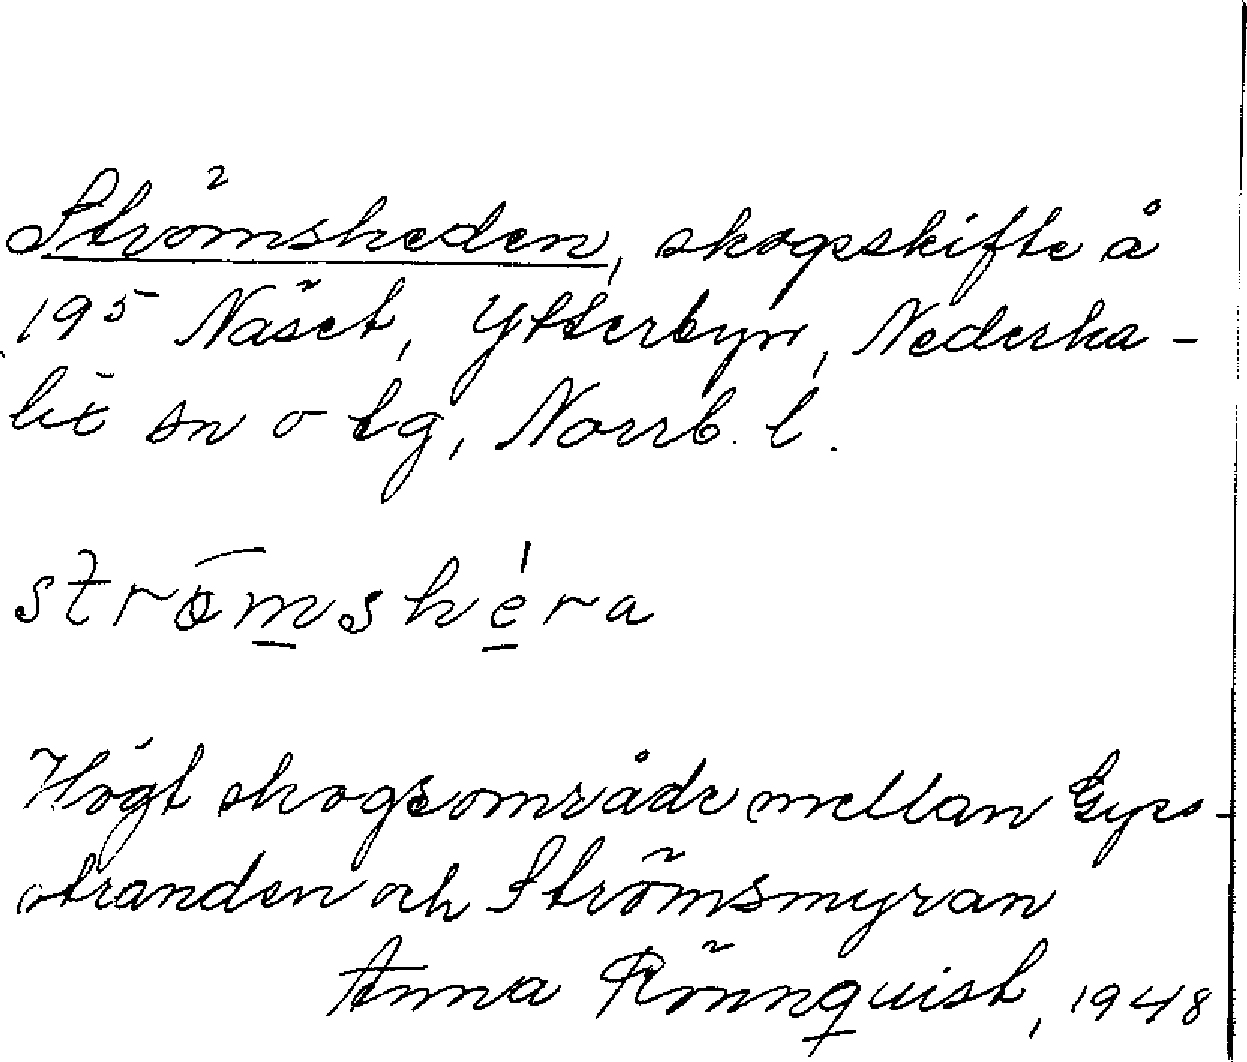 Strömsheden, skogsskifte å
19⁵ Näset, Ytterbyn, Nederka-
lix sn o tg, Norrb. l.
strö̅m̲shé̲ra
Högt skogsområde mellan
stranden och Strömsmyran
Anna Rönnquist, 1948